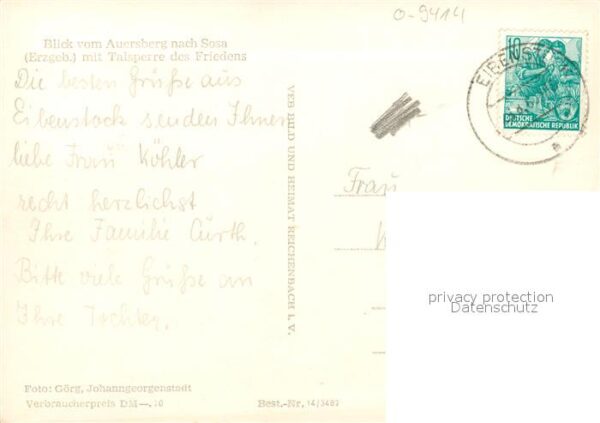 o-9414
Blick vom Auersberg nach Sosa
(Erzgeb.) mit Talsperre des Friedens
Die besten Grüße aus
Eibenstock senden Ihnen
liebe Frau Köhler
recht herzlichst
Ihre Familie Curth.
Bitte viele Grüße an
Ihre Tochter.
Foto: Görg, Johanngeorgenstadt
Verbraucherpreis DM —.10
Best.-Nr. 14/3487
VEB BILD UND HEIMAT REICHENBACH I. V.
10
DEUTSCHE
DEMOKRATISCHE REPUBLIK
Frau
privacy protection
Datenschutz